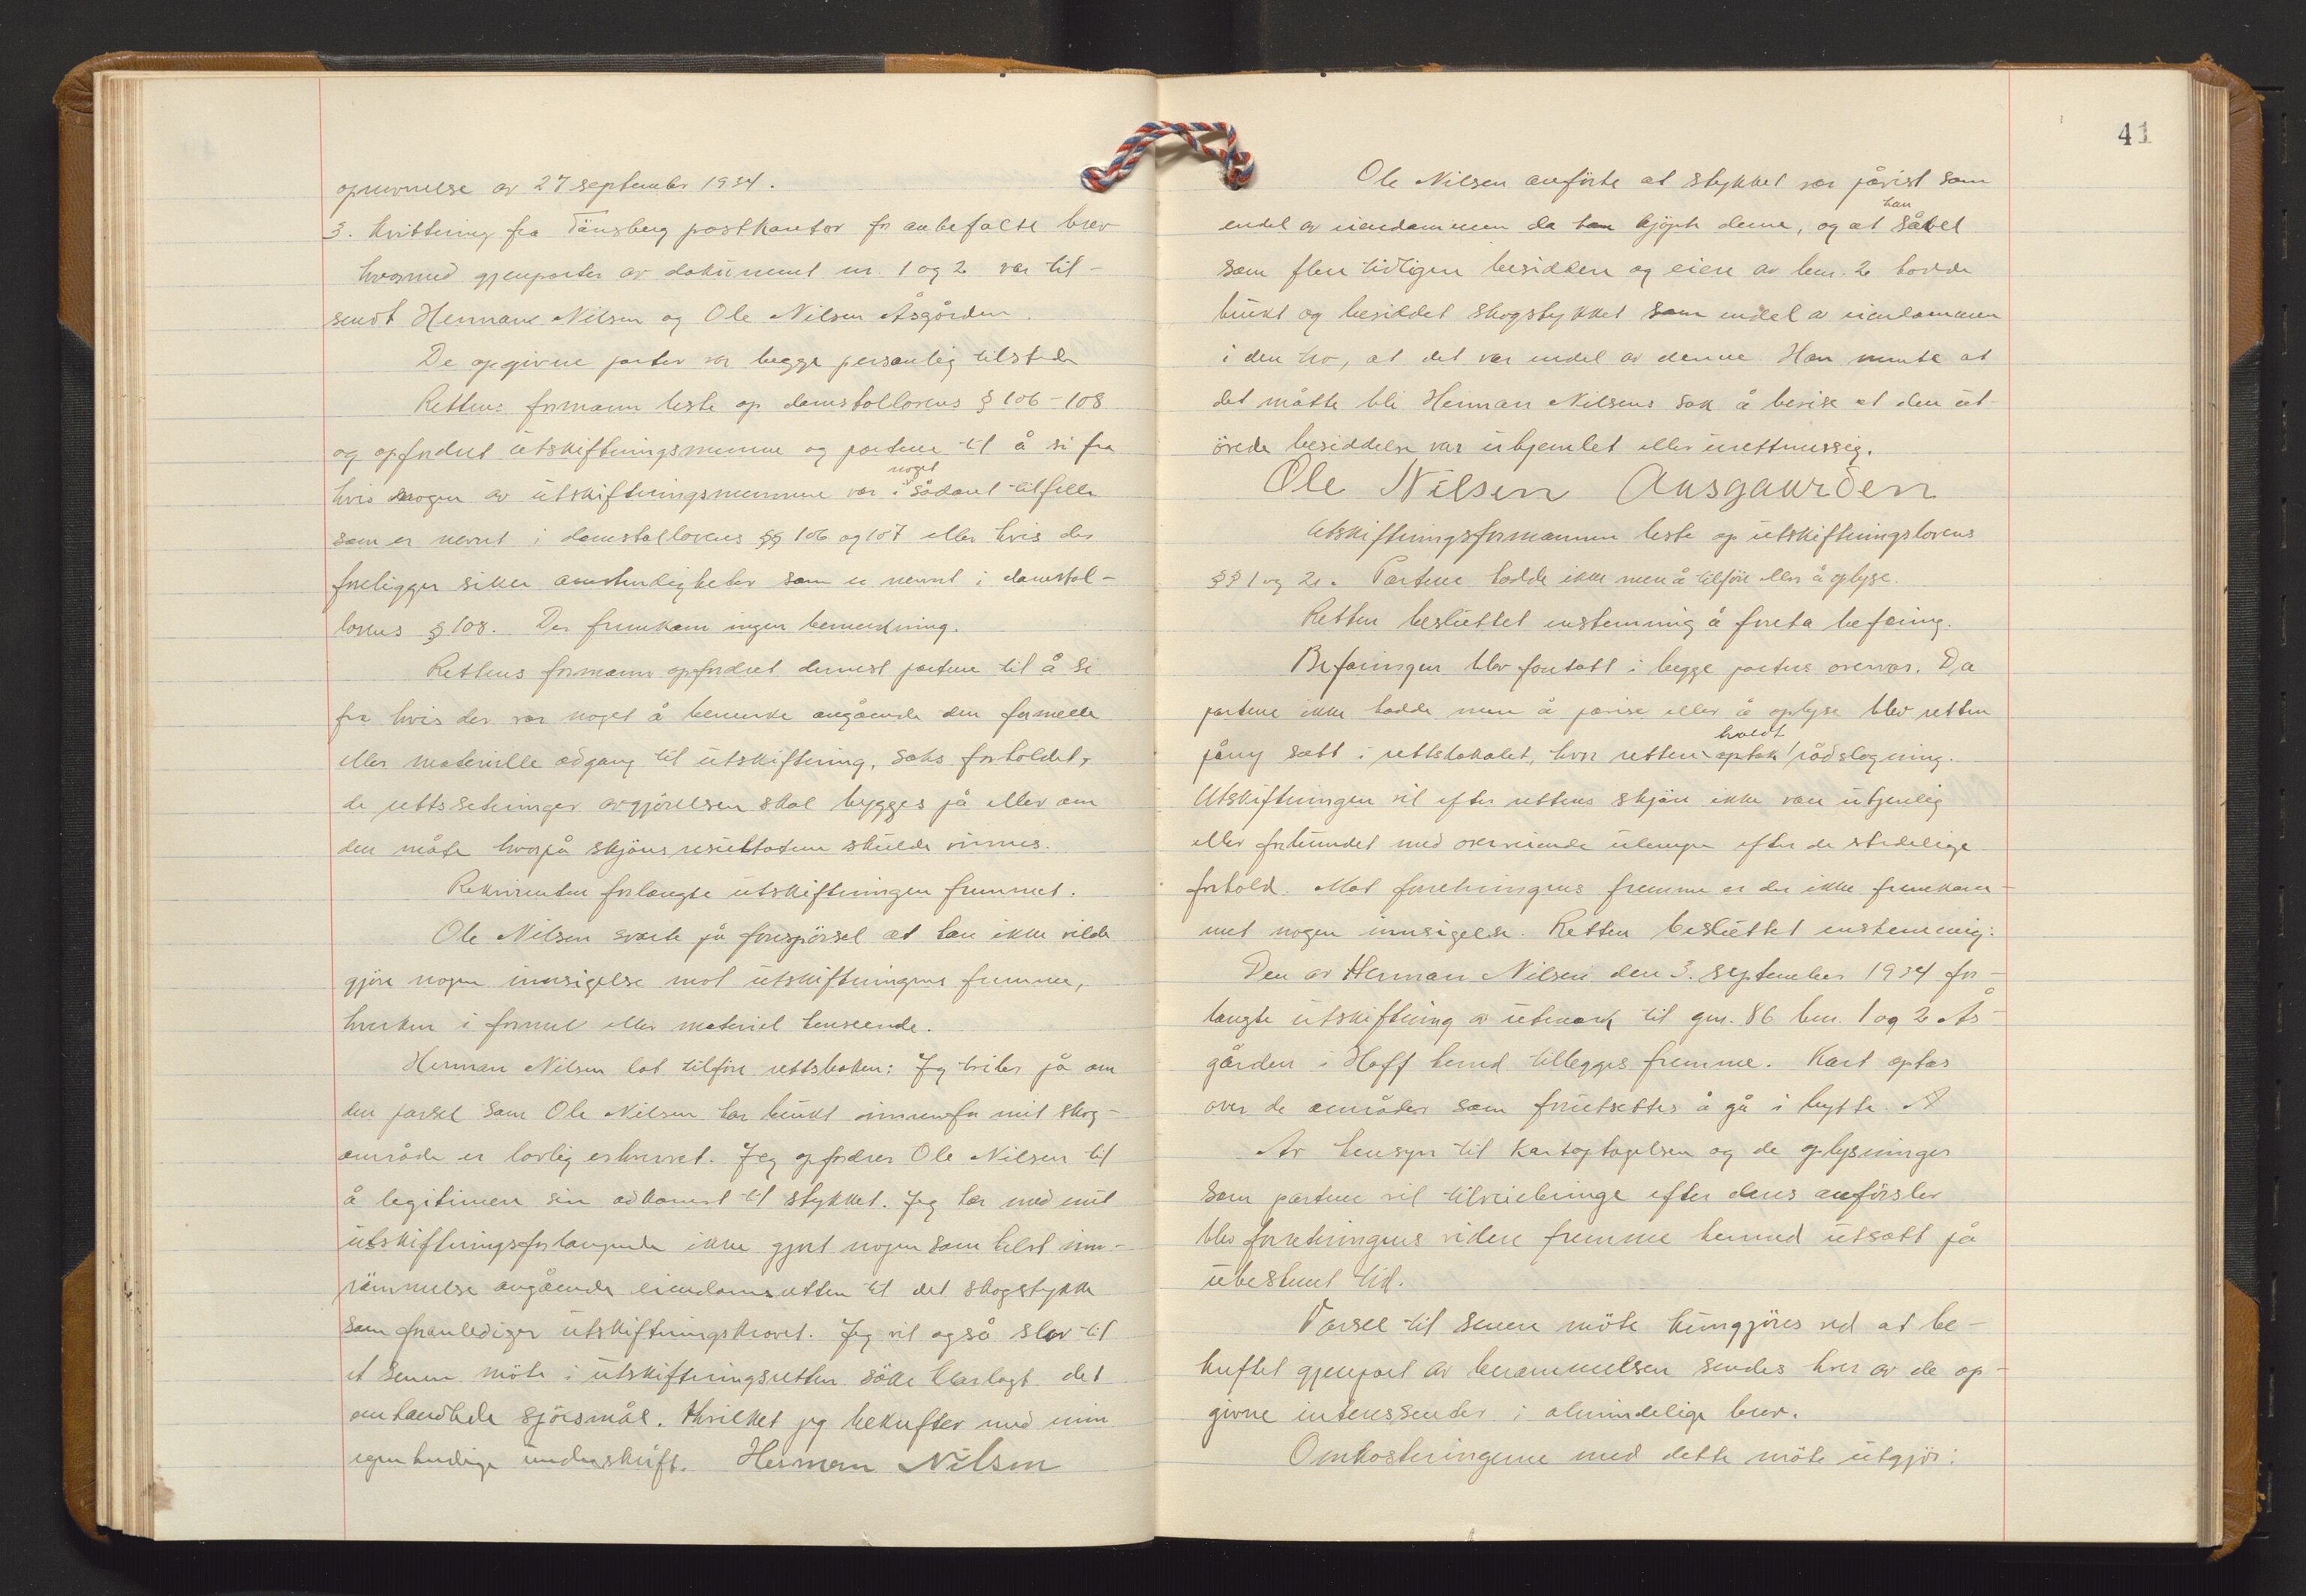 opnevnelse av 27 september 1934.
3. Kvittering fra Tönsberg postkontor for anbefalte brev
hvormed gjenparter av dokument nr. 1 og 2 var til-
sendt Hermann Nilsen og Ole Nilsen Åsgården.
De opgivne parter var begge personlig tilstede
Rettens formann leste op domstollovens § 106-108
og opfordret utskiftningsmennene og partene til å si fra
hvis nogen av utskiftningsmennene var i noget sådant tilfelle
som er nevnt i domstollovens §§ 106 og 107 eller hvis der
foreligger slike omstendigheter som er nevnt i domstol-
lovens § 108. Der fremkom ingen bemerkning.
Rettens formann opfordret dernest partene til å si
fra hvis der var noget å bemerke angående den formelle
eller materielle adgang til utskiftning, saksforholdet,
de rettssetninger avgjörelsen skal bygges på eller om
den måte hvorpå skjönsresultatene skulde vinnes.
Rekvirenten forlangte utskiftningen fremmet.
Ole Nilsen svarte på forespörsel at han ikke vilde
gjöre nogen innsigelse mot utskiftningens fremme,
hverken i formel eller materiel henseende.
Herman Nilsen lot tilföre rettsboken: Jeg tviler på om
den parsel som Ole Nilsen har brukt innenfor mit skog-
område er lovlig erhvervet. Jeg opfordrer Ole Nilsen til
å legitimere sin adkomst til stykket. Jeg har med mit
utskiftningsforlangende ikke gjort nogen som helst inn-
römmelse angående eiendomsretten til det skogstykke
som foranlediger utskiftningskravet. Jeg vil også slev til
et senere möte i utskiftningsretten söke klarlagt det
omhandlede spörsmål. Hvilket jeg bekrefter med min
egenhendige underskrift. Herman Nilsen
41
Ole Nilsen anförte at stykket var påvist som
endel av eiendommen da han kjöpte denne, og at han såvel
som flere tidligere besiddere og eiere av bnr. 2 hadde
brukt og besiddet skogstykket som endel av eiendommen
i den tro, at det var endel av denne. Han mente at
det måtte bli Herman Nilsens sak å bevise at den ut-
övede besiddelse var uhjemlet eller urettmessig.
Ole Nilsen Aasgaarden
Utskiftningsformannen leste op utskiftningslovens
§§ 1 og 2. Partene hadde ikke mer å tilföre eller å oplyse.
Retten besluttet enstemmig å foreta befaring.
Befaringen blev foretatt i begge parters overvær. Da
partene ikke hadde mer å påvise eller å oplyse blev retten
påny satt i rettslokalet, hvor retten optok holdt rådslagning.
Utskiftningen vil efter rettens skjön ikke være utjenlig
eller forbundet med overveiende ulemper efter de stedelige
forhold. Mot forretningens fremme er der ikke fremkom-
met nogen innsigelse. Retten besluttet enstemmig:
Den av Herman Nilsen den 3. september 1934 for-
langte utskiftning av utmark til gnr. 86 bnr. 1 og 2 Ås-
gården i Hoff herred tillegges fremme. Kart optas
over de områder som forutsettes å gå i bytte. A
Av hensyn til kartoptagelsen og de oplysninger
som partene vil tilveiebringe efter deres anförsler
blev forretningens videre fremme hermed utsatt på
ubestemt tid.
Varsel til senere möte kungjöres ved at be-
kreftet gjenpart av berammelsen sendes hver av de op-
givne interessenter i almindelige brev.
Omkostningene med dette möte utgjör: